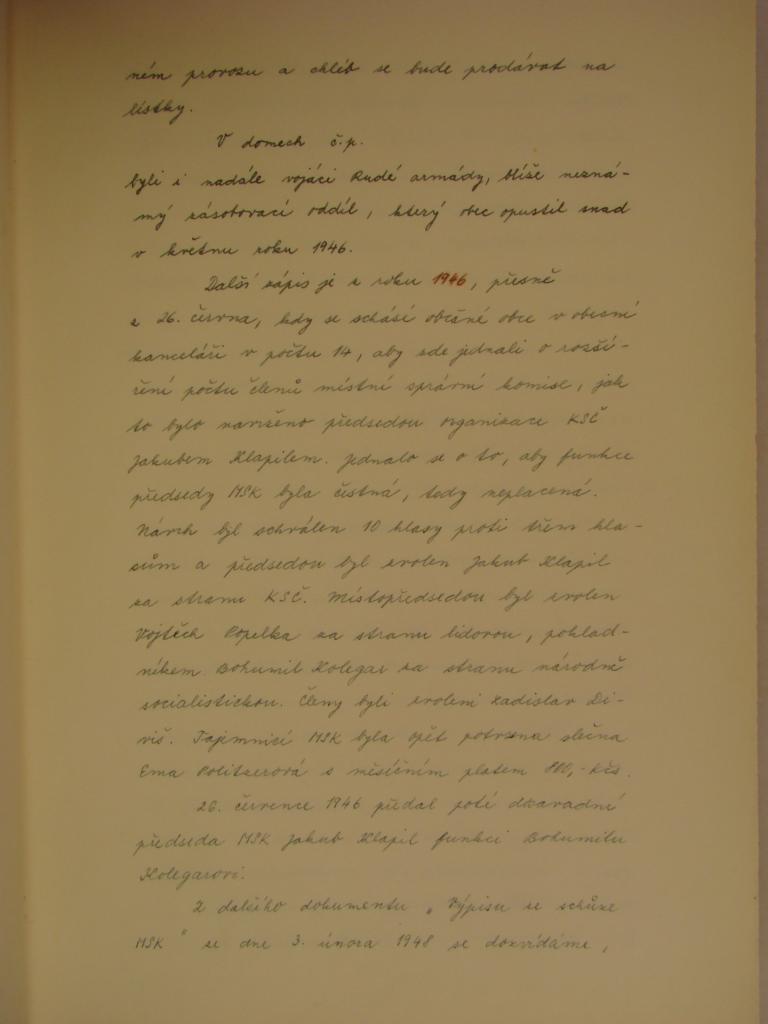 ném provozu a chléb se bude prodávat na
lístky.
V domech č.p.
byli i nadále vojáci Rudé armády, blíže nezná-
mý zásobovací oddíl, který obec opustil snad
v květnu roku 1946.
Další zápis je z roku 1946, přesně
z 26. června, kdy se schází občané obce v obecní
kanceláři v počtu 14, aby zde jednali o rozší-
ření počtu členů místní správní komise, jak
to bylo navrženo předsedou organizace KSČ
Jakubem Klapilem. Jednalo se o to, aby funkce
předsedy MSK byla čestná, tedy neplacená.
Návrh byl schválen 10 hlasy proti třem hla-
sům a předsedou byl zvolen Jakub Klapil
za stranu KSČ. Místopředsedou byl zvolen
Vojtěch Popelka za stranu lidovou, poklad-
níkem Bohumil Kolegar za stranu národně
socialistickou. Členy byli zvoleni Ladislav Di-
viš. Tajemnicí MSK byla opět potvrzena slečna
Ema Politzerová s měsíčním platem 800,- Kčs.
26. července 1946 předal poté dosavadní
předseda MSK Jakub Klapil funkci Bohumilu
Kolegarovi.
Z dalšího dokumentu "Výpisu ze schůze
MSK" ze dne 3. února 1948 se dozvídáme,